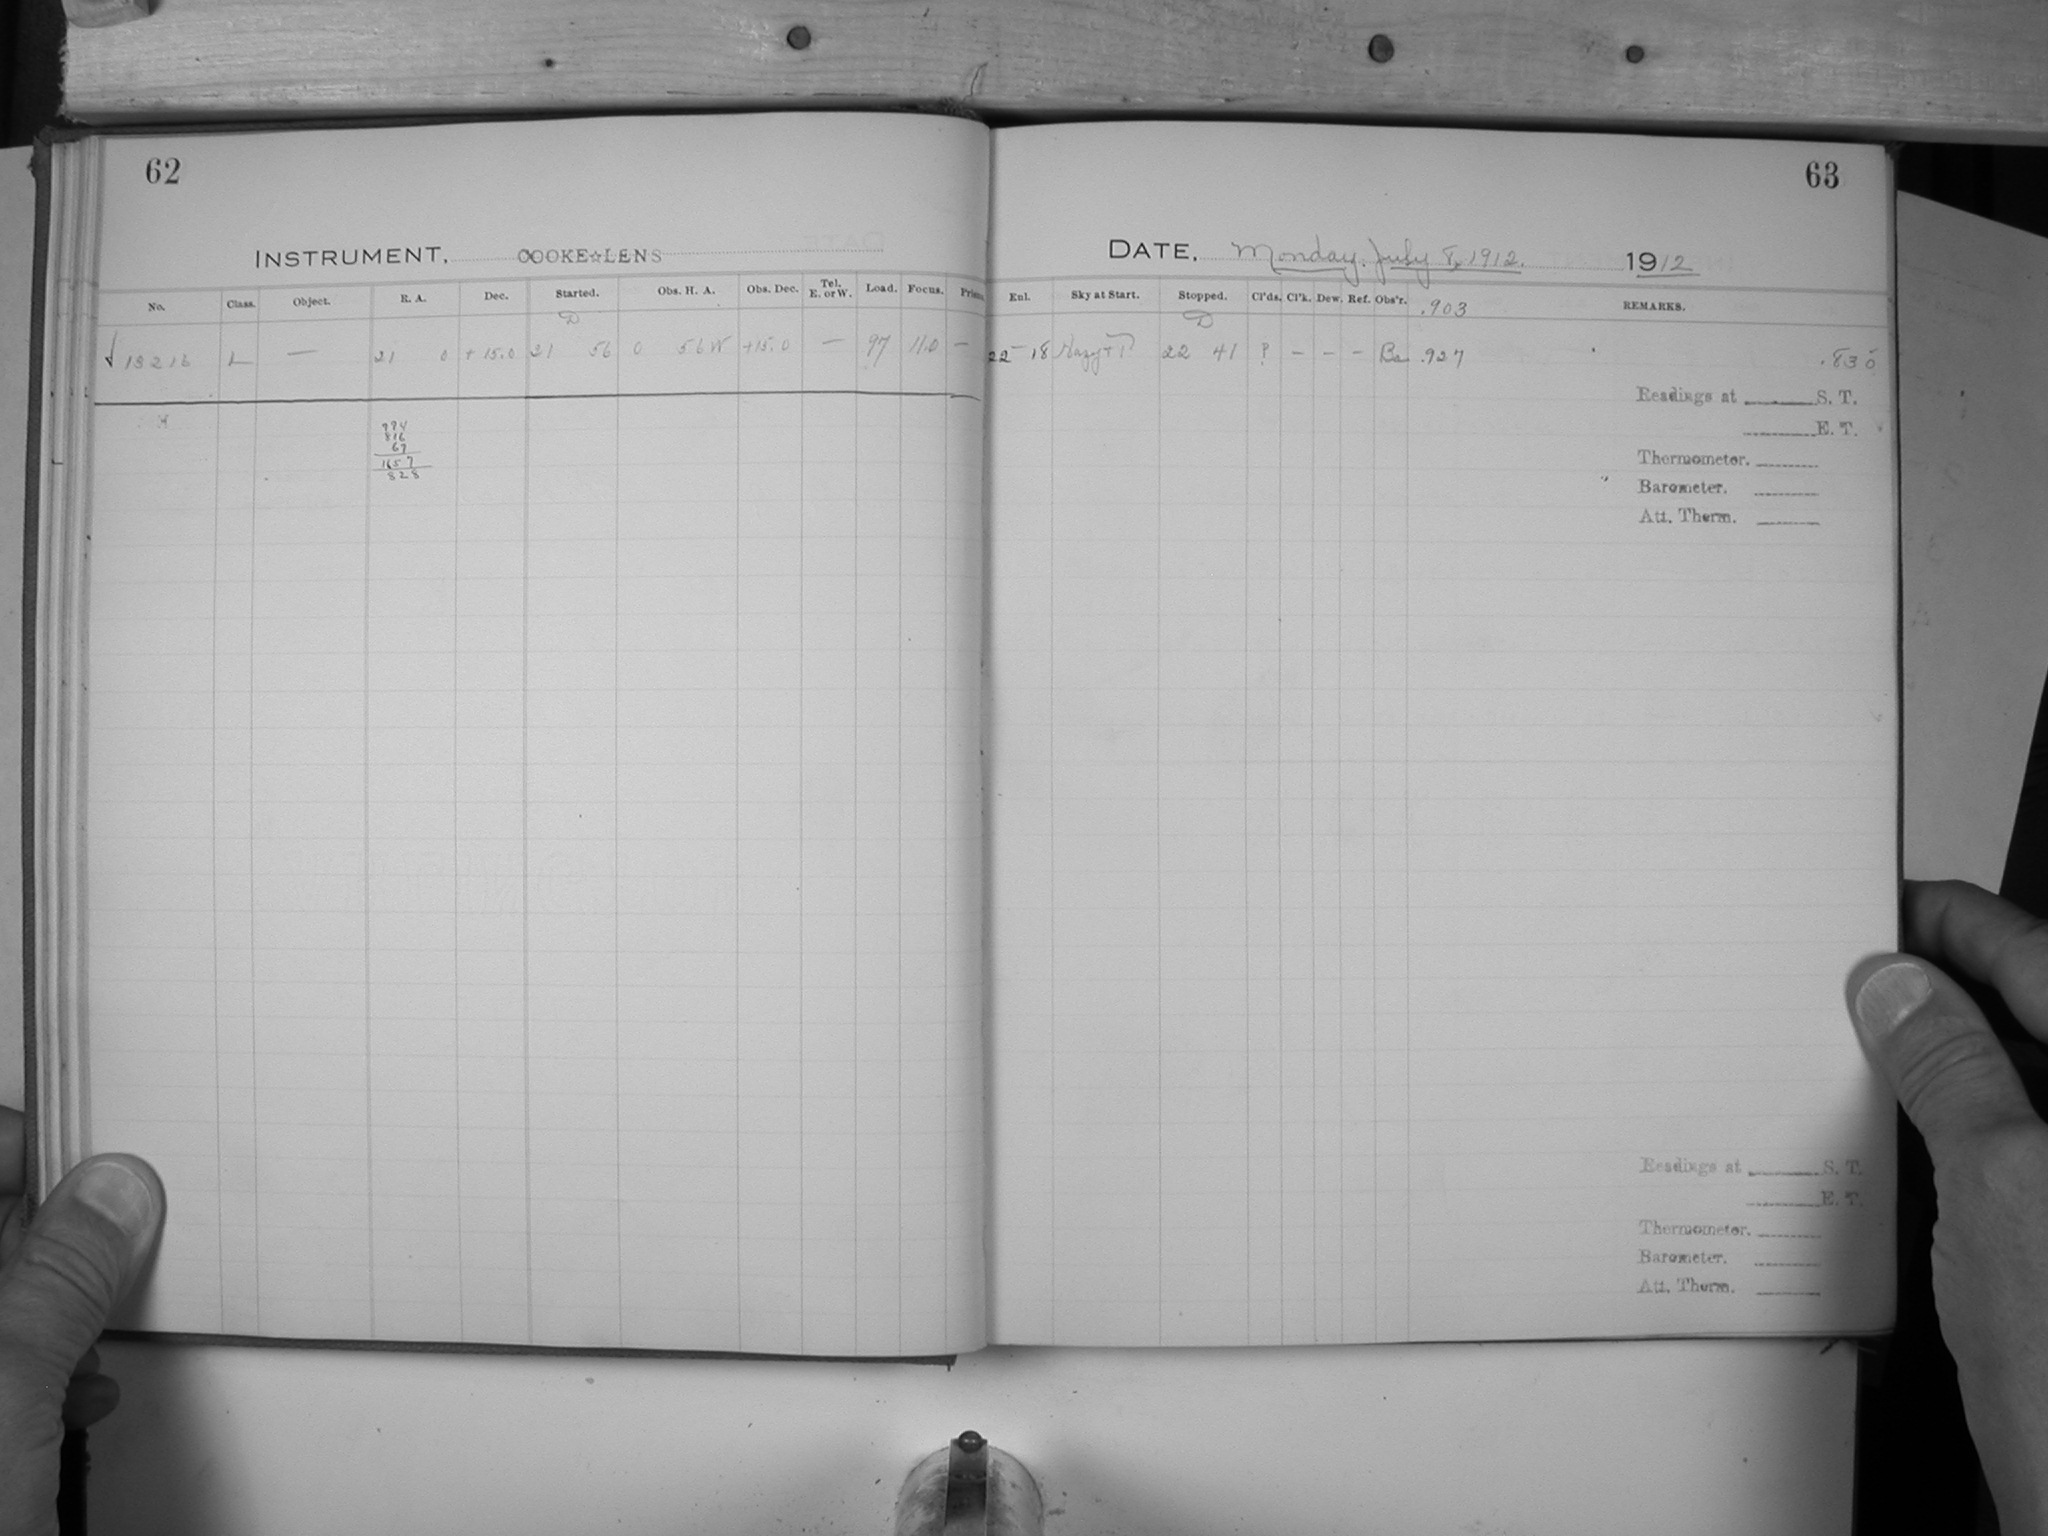 62
INSTRUMENT. COOKE☆LENS
No. Class. Object. R. A. Dec. Started. Obs. H. A. Obs. Dec. Tel. E. or W. Load. Focus.
D
√ 13216 L — 21 0 +15.0 21 56 0 56 W +15.0 — 97 11.0 —
816
67
1657
828
63
DATE. Monday. July 8, 1912. 1912
Eul. Sky at Start. Stopped. Cl'ds. Cl'k. Dew. Ref. Obs'r. .903 REMARKS.
D
22 18 Hazy 22 41 ? — — — Ba .927 .830
Readings at S. T.
E. T.
Thermometer.
Barometer.
Att. Therm.
Readings at S. T.
E. T.
Thermometer.
Barometer.
Att. Therm.